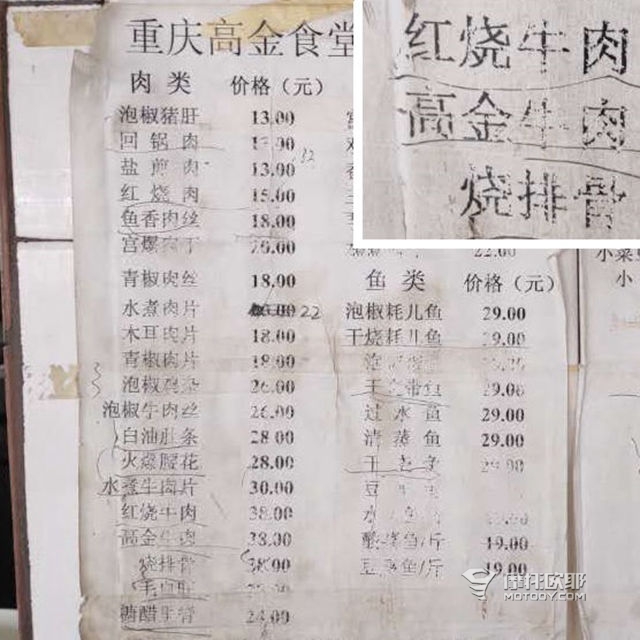 重庆高金食堂
肉类 价格（元）
泡椒猪肝 13.00
回锅肉
盐煎肉 13.00
红烧肉 15.00
鱼香肉丝 18.00
宫爆 20.00
青椒肉丝 18.00
水煮肉片 22
木耳肉片 18.00
青椒肉片 18.00
泡椒 26.00
泡椒牛肉丝 26.00
白油肚条 28.00
火爆腰花 28.00
水煮牛肉片 30.00
红烧牛肉 38.00
高金牛肉 38.00
烧排骨 38.00
糖醋排骨 24.00
22.00
鱼类 价格（元）
泡椒耗儿鱼 29.00
干烧耗儿鱼 29.00
带鱼 29.00
过水鱼 29.00
清蒸鱼 29.00
29.00
豆
水
鱼/斤 19.00
豆 鱼/斤 19.00
小菜
小
红烧牛肉
高金牛肉
烧排骨
摩托欧耶
MOTOOY.COM